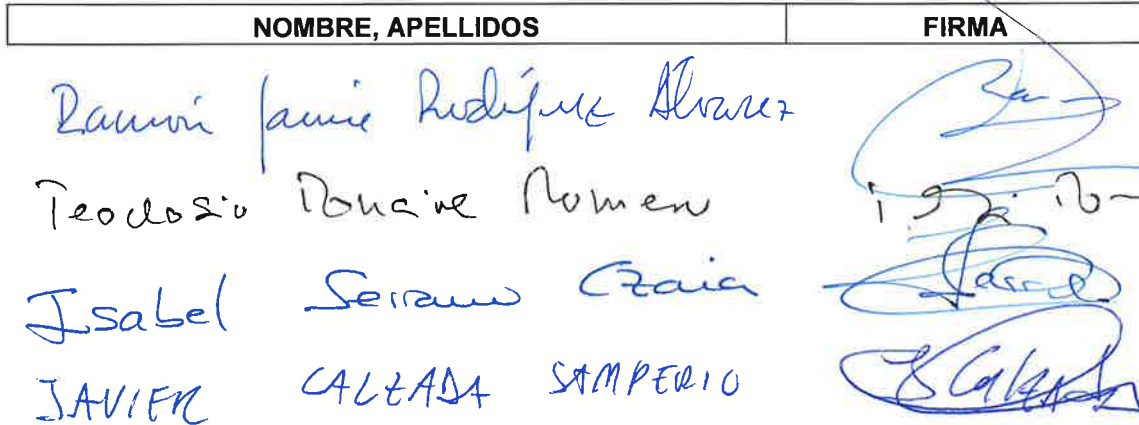 NOMBRE, APELLIDOS FIRMA
Ramón Jaime Rodríguez Álvarez
Teodosio Donaire Romero
Isabel Serrano
JAVIER CALZADA SAMPERIO